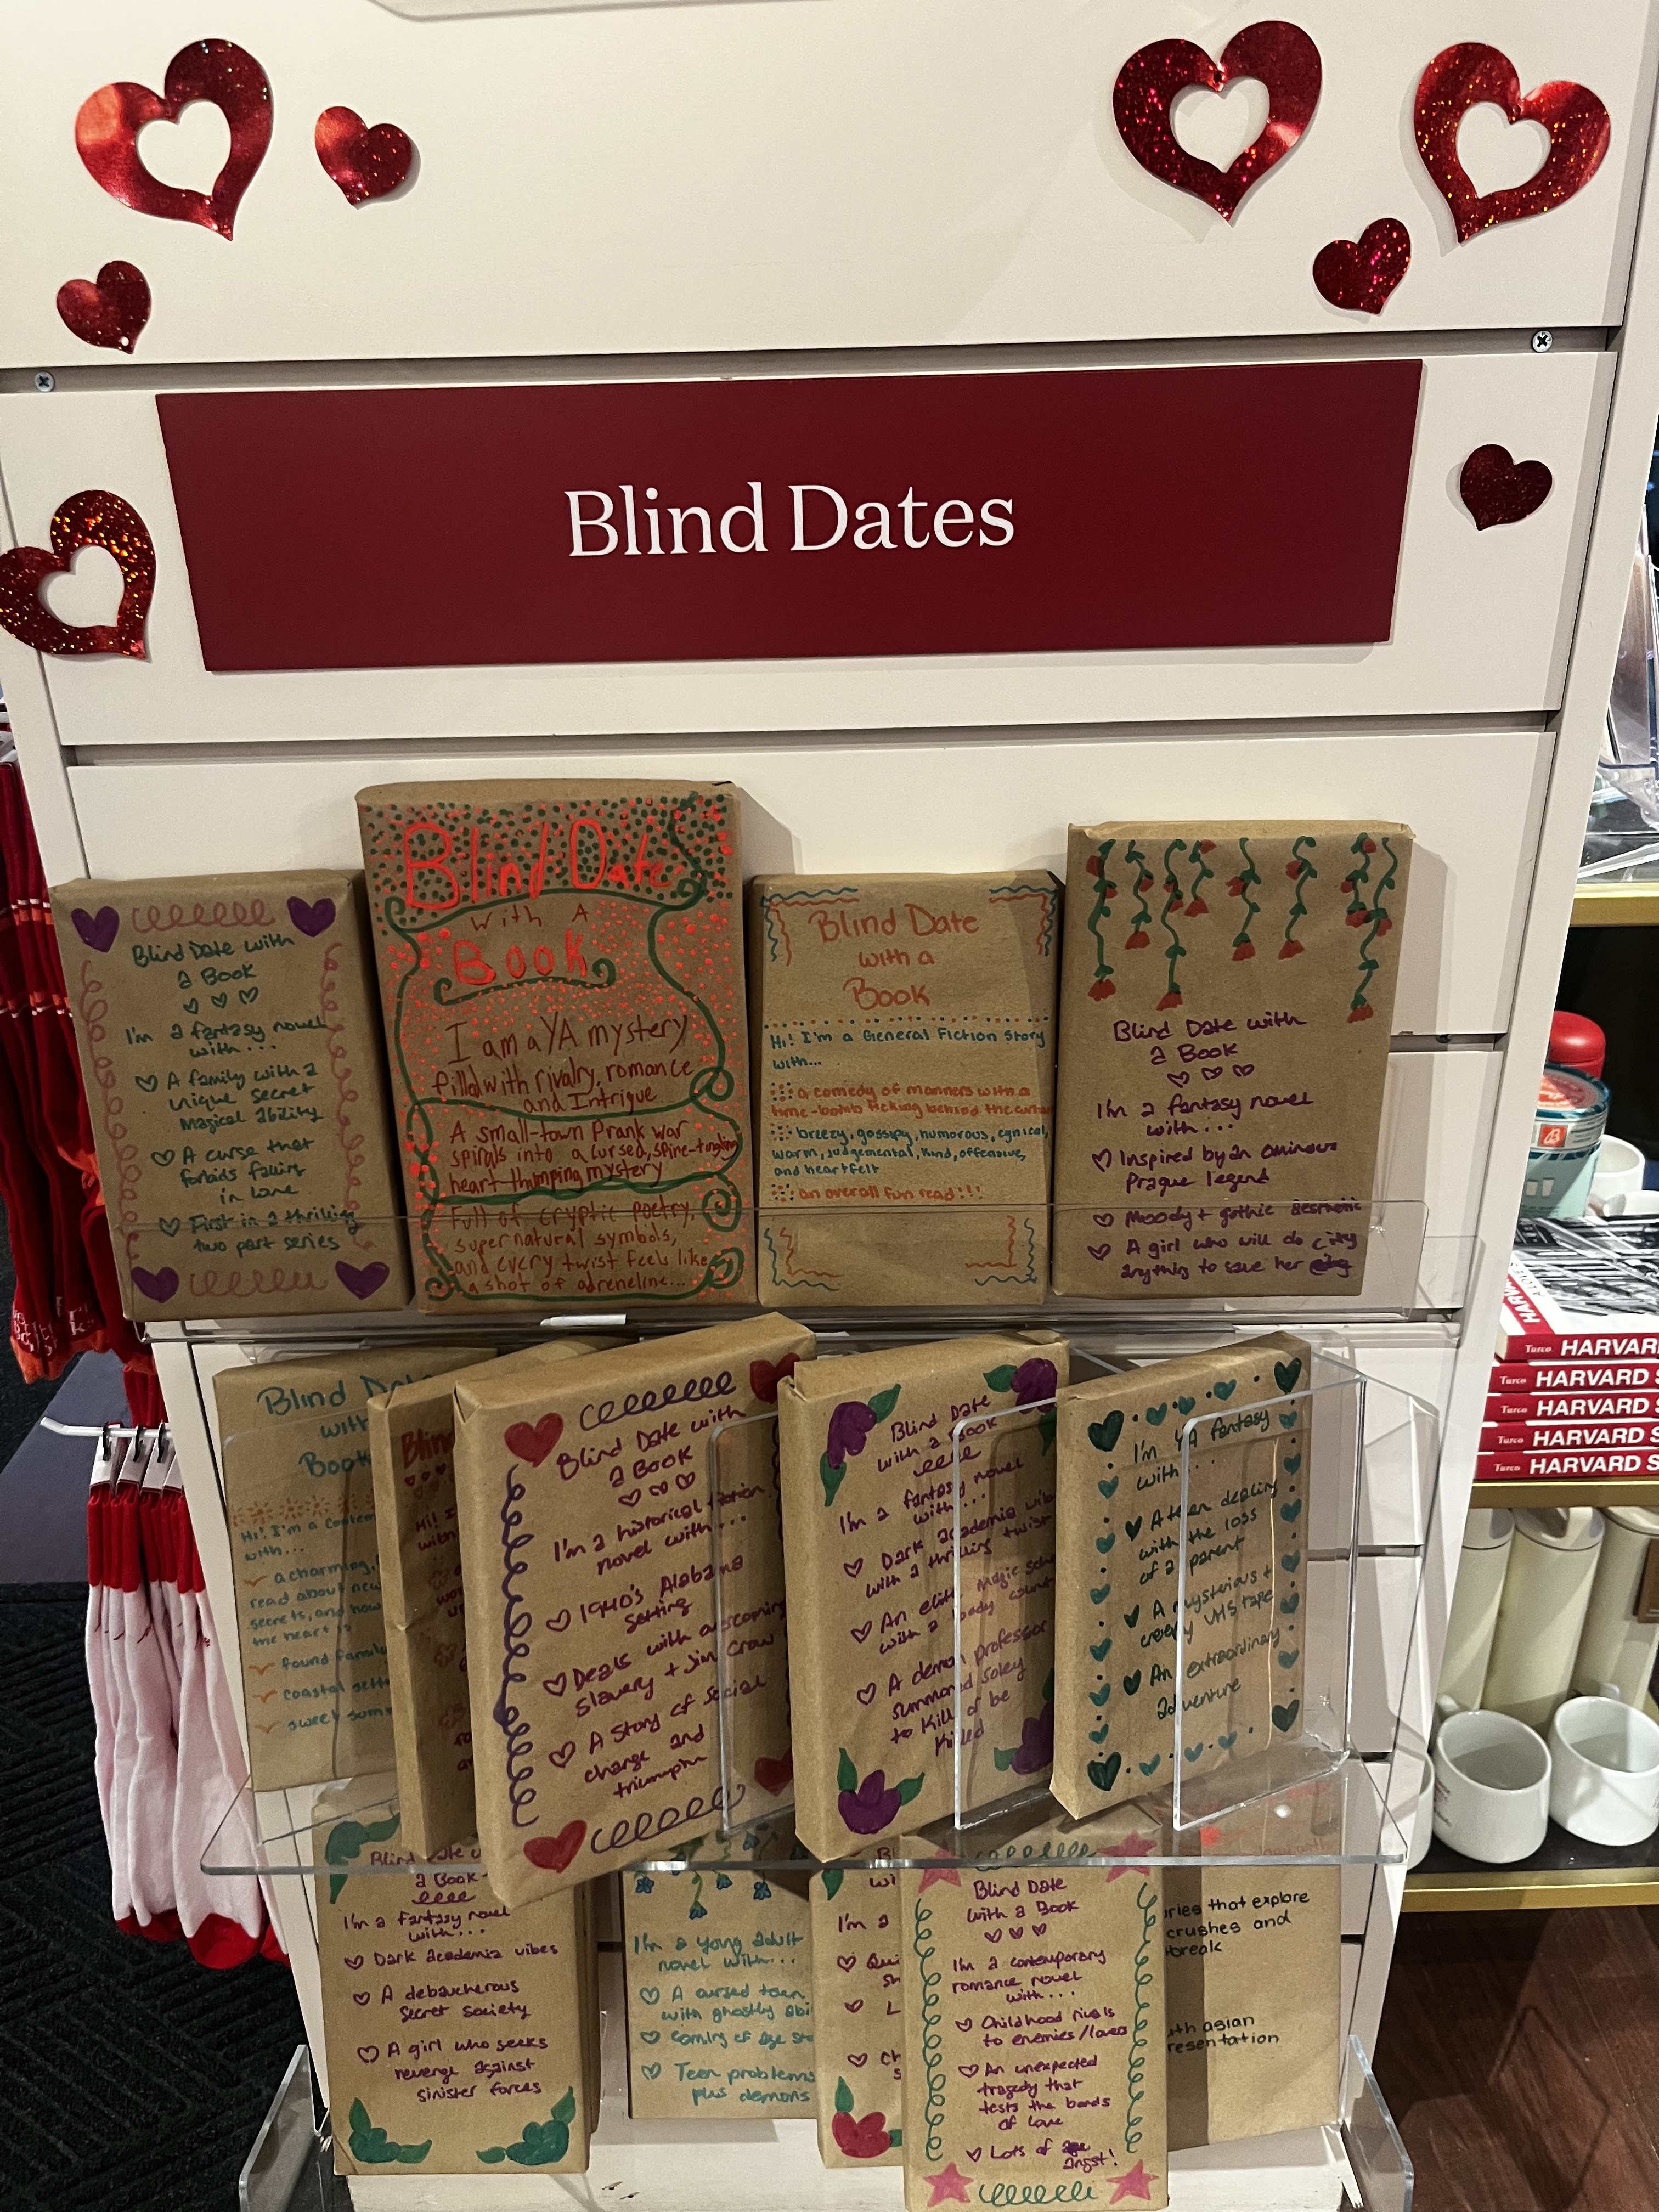 Blind Dates
Blind Date with
a Book
I'm a fantasy novel
with...
A family with a
unique secret
Magical ability
A curse that
forbids falling
in love
First in a thrilling
two part series
Blind Date
with A
BOOK
I am a YA mystery
filled with rivalry, romance
and Intrigue
A small-town Prank war
spirals into a cursed, spine-tingling
heart-thumping mystery
Full of cryptic poetry,
supernatural symbols,
and every twist feels like
a shot of adreneline...
Blind Date
with a
Book
Hi! I'm a General Fiction Story
with...
a comedy of manners with a
time-bomb ticking behind the curtain
breezy, gossipy, humorous, cynical,
warm, judgemental, kind, offensive,
and heartfelt
an overall fun read!!!
Blind Date with
a Book
I'm a fantasy novel
with...
Inspired by an ominous
Prague legend
Moody + gothic aesthetic
A girl who will do
anything to save her city
Blind Da
with
Book
Hi! I'm a Contem
with...
a charming,
read about new
secrets, and how
the heart is
found famil
coastal sett
sweet summ
Blin
Hi! I
with
Blind Date with
a Book
I'm a historical fiction
novel with...
1940's Alabama
setting
Deals with overcoming
Slavery + Jim Crow
A Story of Social
change and
triumph
Blind Date
with a Book
I'm a fantasy novel
with...
Dark academia vibe
with a thrilling twist
An elite Magic scho
with a body count
A demon professor
summoned soley
to kill or be
killed
I'm YA fantasy
with...
A teen dealing
with the loss
of a parent
A mysterious +
creepy VHS tape
An extraordinary
adventure
Blind Date w
a Book
I'm a fantasy novel
with...
Dark academia vibes
A debaucherous
Secret society
A girl who seeks
revenge against
sinister forces
I'm a young adult
novel with...
A cursed town
with ghostly abi
Coming of age sto
Teen problems
plus demons
Bl
wi
I'm a
Qui
L
Ch
Blind Date
with a Book
I'm a contemporary
romance novel
with...
Childhood rivals
to enemies/lovers
An unexpected
tragedy that
tests the bonds
of love
Lots of
angst!
ries that explore
crushes and
break
th asian
resentation
HARVAR
Turco HARVARD
Turco HARVARD S
Turco HARVARD S
Turco HARVARD S
Turco HARVARD S